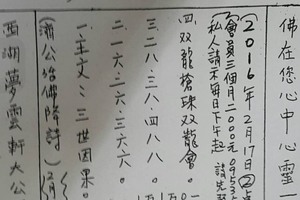 佛在您心中心靈一
2016年2月17日②点
②會員三個月二000元0953
私人請示每日下午起 設先
四.双龍搶珠双龍會。
三.二八.三八.四八八。
二.一六.二六.三六六。
一.主文:三世因果。
(濟公活佛降詩)(2月
西湖夢雲軒大公